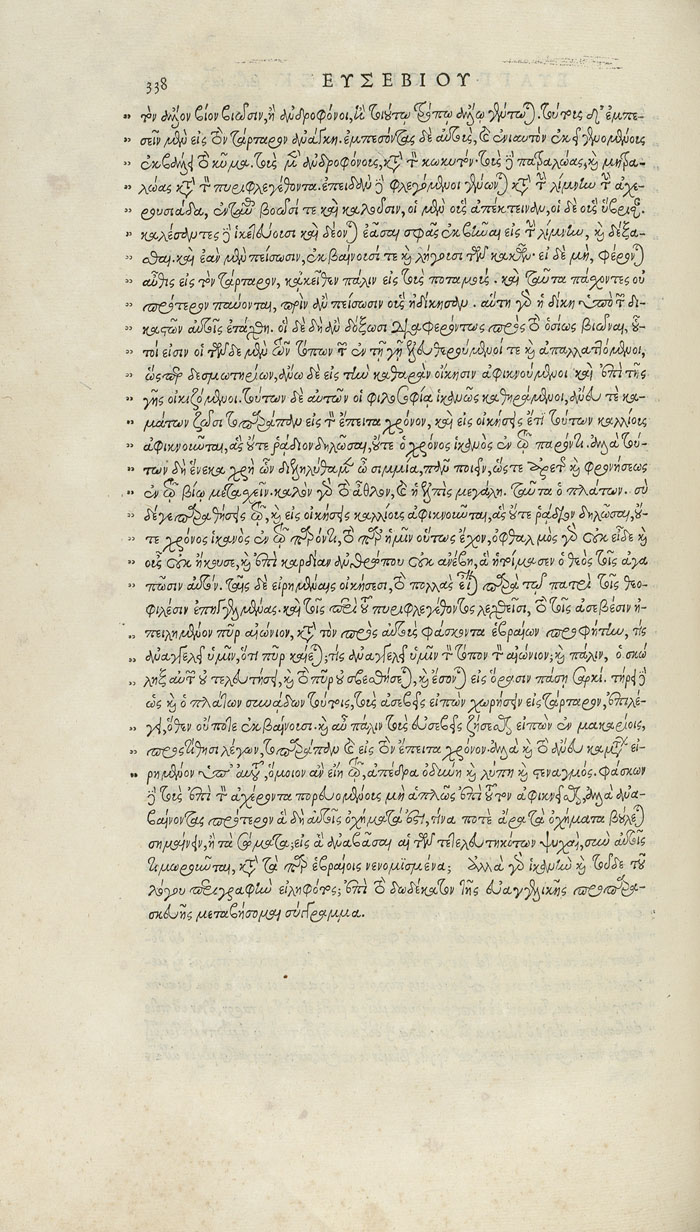 338 ΕΥΣΕΒΙΟΥ
τὸν ἄλλον βίον βιῶσιν, ἢ ἀνδροφόνοι, τοιούτῳ τρόπῳ ἄλλῳ γένωνται. τούτοις δ' ἐμπε-
σεῖν μὲν εἰς τὸν τάρταρον ἀνάγκη. ἐμπεσόντας δὲ αὐτοὺς, καὶ ἐνιαυτὸν ἐκεῖ γενομένους
ἐκβάλλει τὸ κῦμα. τοὺς μὲν ἀνδροφόνους, κατὰ τὸν κωκυτόν. τοὺς δὲ πατραλώας, καὶ μητρα-
λώας κατὰ τὸν πυριφλεγέθοντα. ἐπειδὰν δὲ φλεγόμενοι γένωνται κατὰ τὴν λίμνην τὴν ἀχε-
ρουσιάδα, ἐνταῦθα βοῶσί τε καὶ καλοῦσιν, οἱ μὲν οὓς ἀπέκτειναν, οἱ δὲ οὓς ὕβρισαν.
καλέσαντες δὲ ἱκετεύουσι καὶ δέονται ἐᾶσαι σφᾶς ἐκβῆναι εἰς τὴν λίμνην, καὶ δέξα-
σθαι. καὶ ἐὰν μὲν πείσωσιν, ἐκβαίνουσί τε καὶ λήγουσι τῶν κακῶν. εἰ δὲ μὴ, φέρονται
αὖθις εἰς τὸν τάρταρον, κἀκεῖθεν πάλιν εἰς τοὺς ποταμούς. καὶ ταῦτα πάσχοντες οὐ
πρότερον παύονται, πρὶν ἂν πείσωσιν οὓς ἠδίκησαν. αὕτη γὰρ ἡ δίκη ὑπὸ τῶν δι-
καστῶν αὐτοῖς ἐτάχθη. οἳ δὲ δὴ ἂν δόξωσι διαφερόντως πρὸς τὸ ὁσίως βιῶναι, οὗ-
τοί εἰσιν οἱ τῶνδε μὲν τῶν τόπων τῶν ἐν τῇ γῇ ἐλευθερούμενοί τε καὶ ἀπαλλαττόμενοι,
ὥσπερ δεσμωτηρίων, ἄνω δὲ εἰς τὴν καθαρὰν οἴκησιν ἀφικνούμενοι καὶ ἐπὶ τῆς
γῆς οἰκιζόμενοι. τούτων δὲ αὐτῶν οἱ φιλοσοφίᾳ ἱκανῶς καθηράμενοι, ἄνευ τε κα-
μάτων ζῶσι τοπαράπαν εἰς τὸν ἔπειτα χρόνον, καὶ εἰς οἰκήσεις ἔτι τούτων καλλίους
ἀφικνοῦνται, ἃς οὔτε ῥᾴδιον δηλῶσαι, οὔτε ὁ χρόνος ἱκανὸς ἐν τῷ παρόντι. ἀλλὰ τού-
των δὴ ἕνεκα χρὴ ὧν διεληλύθαμεν ὦ σιμμία, πᾶν ποιεῖν, ὥστε ἀρετῆς καὶ φρονήσεως
ἐν τῷ βίῳ μετασχεῖν. καλὸν γὰρ τὸ ἆθλον, καὶ ἡ ἐλπὶς μεγάλη. ταῦτα ὁ πλάτων. σὺ
δέ γε παραθήσεις τῷ, καὶ εἰς οἰκήσεις καλλίους ἀφικνοῦνται, ἃς οὔτε ῥᾴδιον δηλῶσαι, οὔ-
τε χρόνος ἱκανὸς ἐν τῷ παρόντι, τὸ παρ' ἡμῖν οὕτως ἔχον, ὀφθαλμὸς γὰρ οὐκ εἶδε καὶ
οὖς οὐκ ἤκουσε, καὶ ἐπὶ καρδίαν ἀνθρώπου οὐκ ἀνέβη, ἃ ἡτοίμασεν ὁ θεὸς τοῖς ἀγα
πῶσιν αὐτόν. ταῖς δὲ εἰρημέναις οἰκήσεσι, τὸ πολλὰς εἶναι παρὰ τῷ πατρὶ τοῖς θεο-
φιλέσιν ἐπηγγελμένας. καὶ τοῖς περὶ τοῦ πυριφλεγέθοντος λεχθεῖσι, τὸ τοῖς ἀσεβέσιν ἠ-
πειλημένον πῦρ αἰώνιον, κατὰ τὸν πρὸς αὐτοὺς φάσκοντα ἑβραίων προφήτην, τίς
ἀναγγελεῖ ὑμῖν, ὅτι πῦρ καίεται; τίς ἀναγγελεῖ ὑμῖν τὸν τόπον τὸν αἰώνιον; καὶ πάλιν, ὁ σκώ
ληξ αὐτῶν οὐ τελευτήσει, καὶ τὸ πῦρ οὐ σβεσθήσεται, καὶ ἔσονται εἰς ὅρασιν πάσῃ σαρκί. τήρει δὲ
ὡς καὶ ὁ πλάτων συνᾴδων τούτοις, τοὺς ἀσεβεῖς εἰπὼν χωρήσειν εἰς τάρταρον, ἐπιλέ-
γει, ὅθεν οὔποτε ἐκβαίνουσι. καὶ αὖ πάλιν τοὺς εὐσεβεῖς ζήσεσθαι εἰπὼν ἐν μακαρίοις,
προστίθησι λέγων, τοπαράπαν καὶ εἰς τὸν ἔπειτα χρόνον. ἀλλὰ καὶ τὸ ἄνευ καμάτων εἰ-
ρημένον ὑπ' αὐτοῦ, ὅμοιον ἂν εἴη τῷ, ἀπέδρα ὀδύνη καὶ λύπη καὶ στεναγμός. φάσκων
δὲ τοὺς ἐπὶ τὸν ἀχέροντα πορευομένους μὴ ἁπλῶς ἐπὶ τοῦτον ἀφικνεῖσθαι, ἀλλὰ ἀνα-
βαίνοντας πρότερον ἃ δὴ αὐτοῖς ὀχήματά ἐστι, τίνα ποτὲ ἄρα τὰ ὀχήματα βούλεται
σημαίνειν, ἢ τὰ σώματα; εἰς ἃ ἀναβᾶσαι αἱ τῶν τετελευτηκότων ψυχαὶ, σὺν αὐτοῖς
τιμωροῦνται, κατὰ τὰ παρ' ἑβραίοις νενομισμένα; ἀλλὰ γὰρ ἱκανὴν καὶ τοῦδε τοῦ
λόγου περιγραφὴν εἰληφότος; ἐπὶ τὸ δωδέκατον τῆς εὐαγγελικῆς προπαρα-
σκευῆς μεταβήσομαι σύγγραμμα.